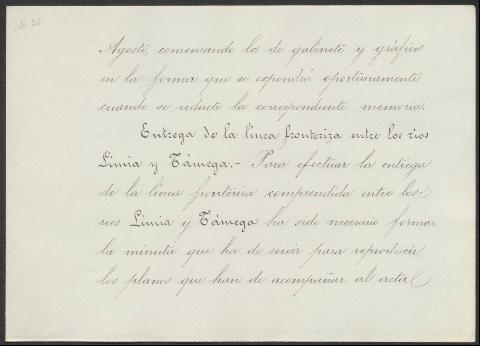 Agosto, comenzando los de gabinete y gráficos
en la forma que se expondrá oportunamente
cuando se redacte la correspondiente memoria.
Entrega de la línea fronteriza entre los ríos
Limia y Támega.- Para efectuar la entrega
de la línea fronteriza comprendida entre los
ríos Limia y Támega ha sido necesario formar
la minuta que ha de servir para reproducir
los planos que han de acompañar al acta